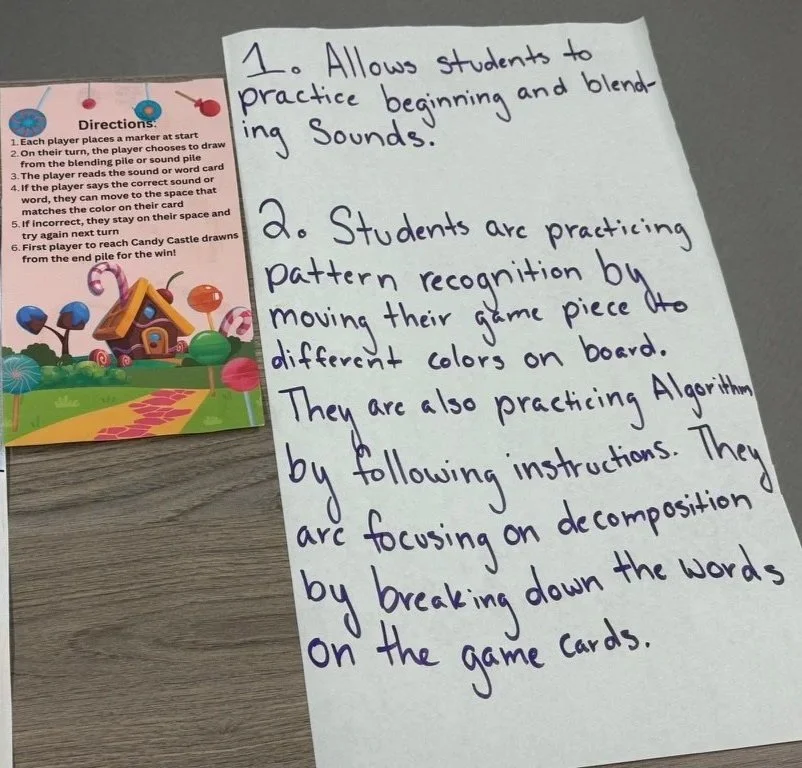 Directions:
1. Each player places a marker at start
2. On their turn, the player chooses to draw
from the blending pile or sound pile
3. The player reads the sound or word card
4. If the player says the correct sound or
word, they can move to the space that
matches the color on their card
5. If incorrect, they stay on their space and
try again next turn
6. First player to reach Candy Castle drawns
from the end pile for the win!
1. Allows students to
practice beginning and blend-
ing Sounds.
2. Students are practicing
pattern recognition by
moving their game piece to
different colors on board.
They are also practicing Algorithm
by following instructions. They
are focusing on decomposition
by breaking down the words
on the game cards.